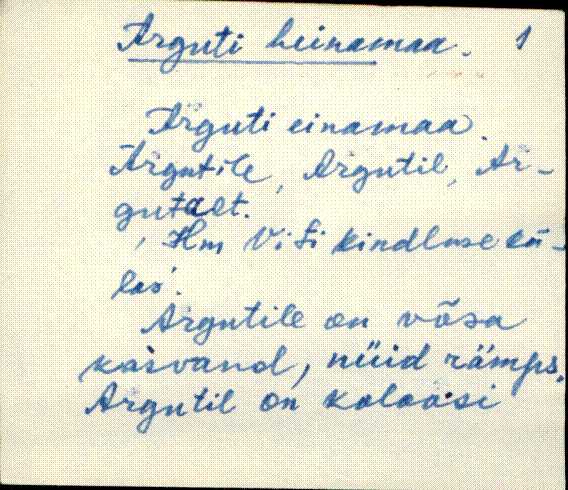 Ärguti heinamaa. 1
Ärguti einamaa.
Ärgutile, Ärgutil, Är-
gutalt.
, Hm Viti kindluse kü-
las'.
Ärgutile on võsa
kasvand, nüid rämps.
Ärgutil on koloasi